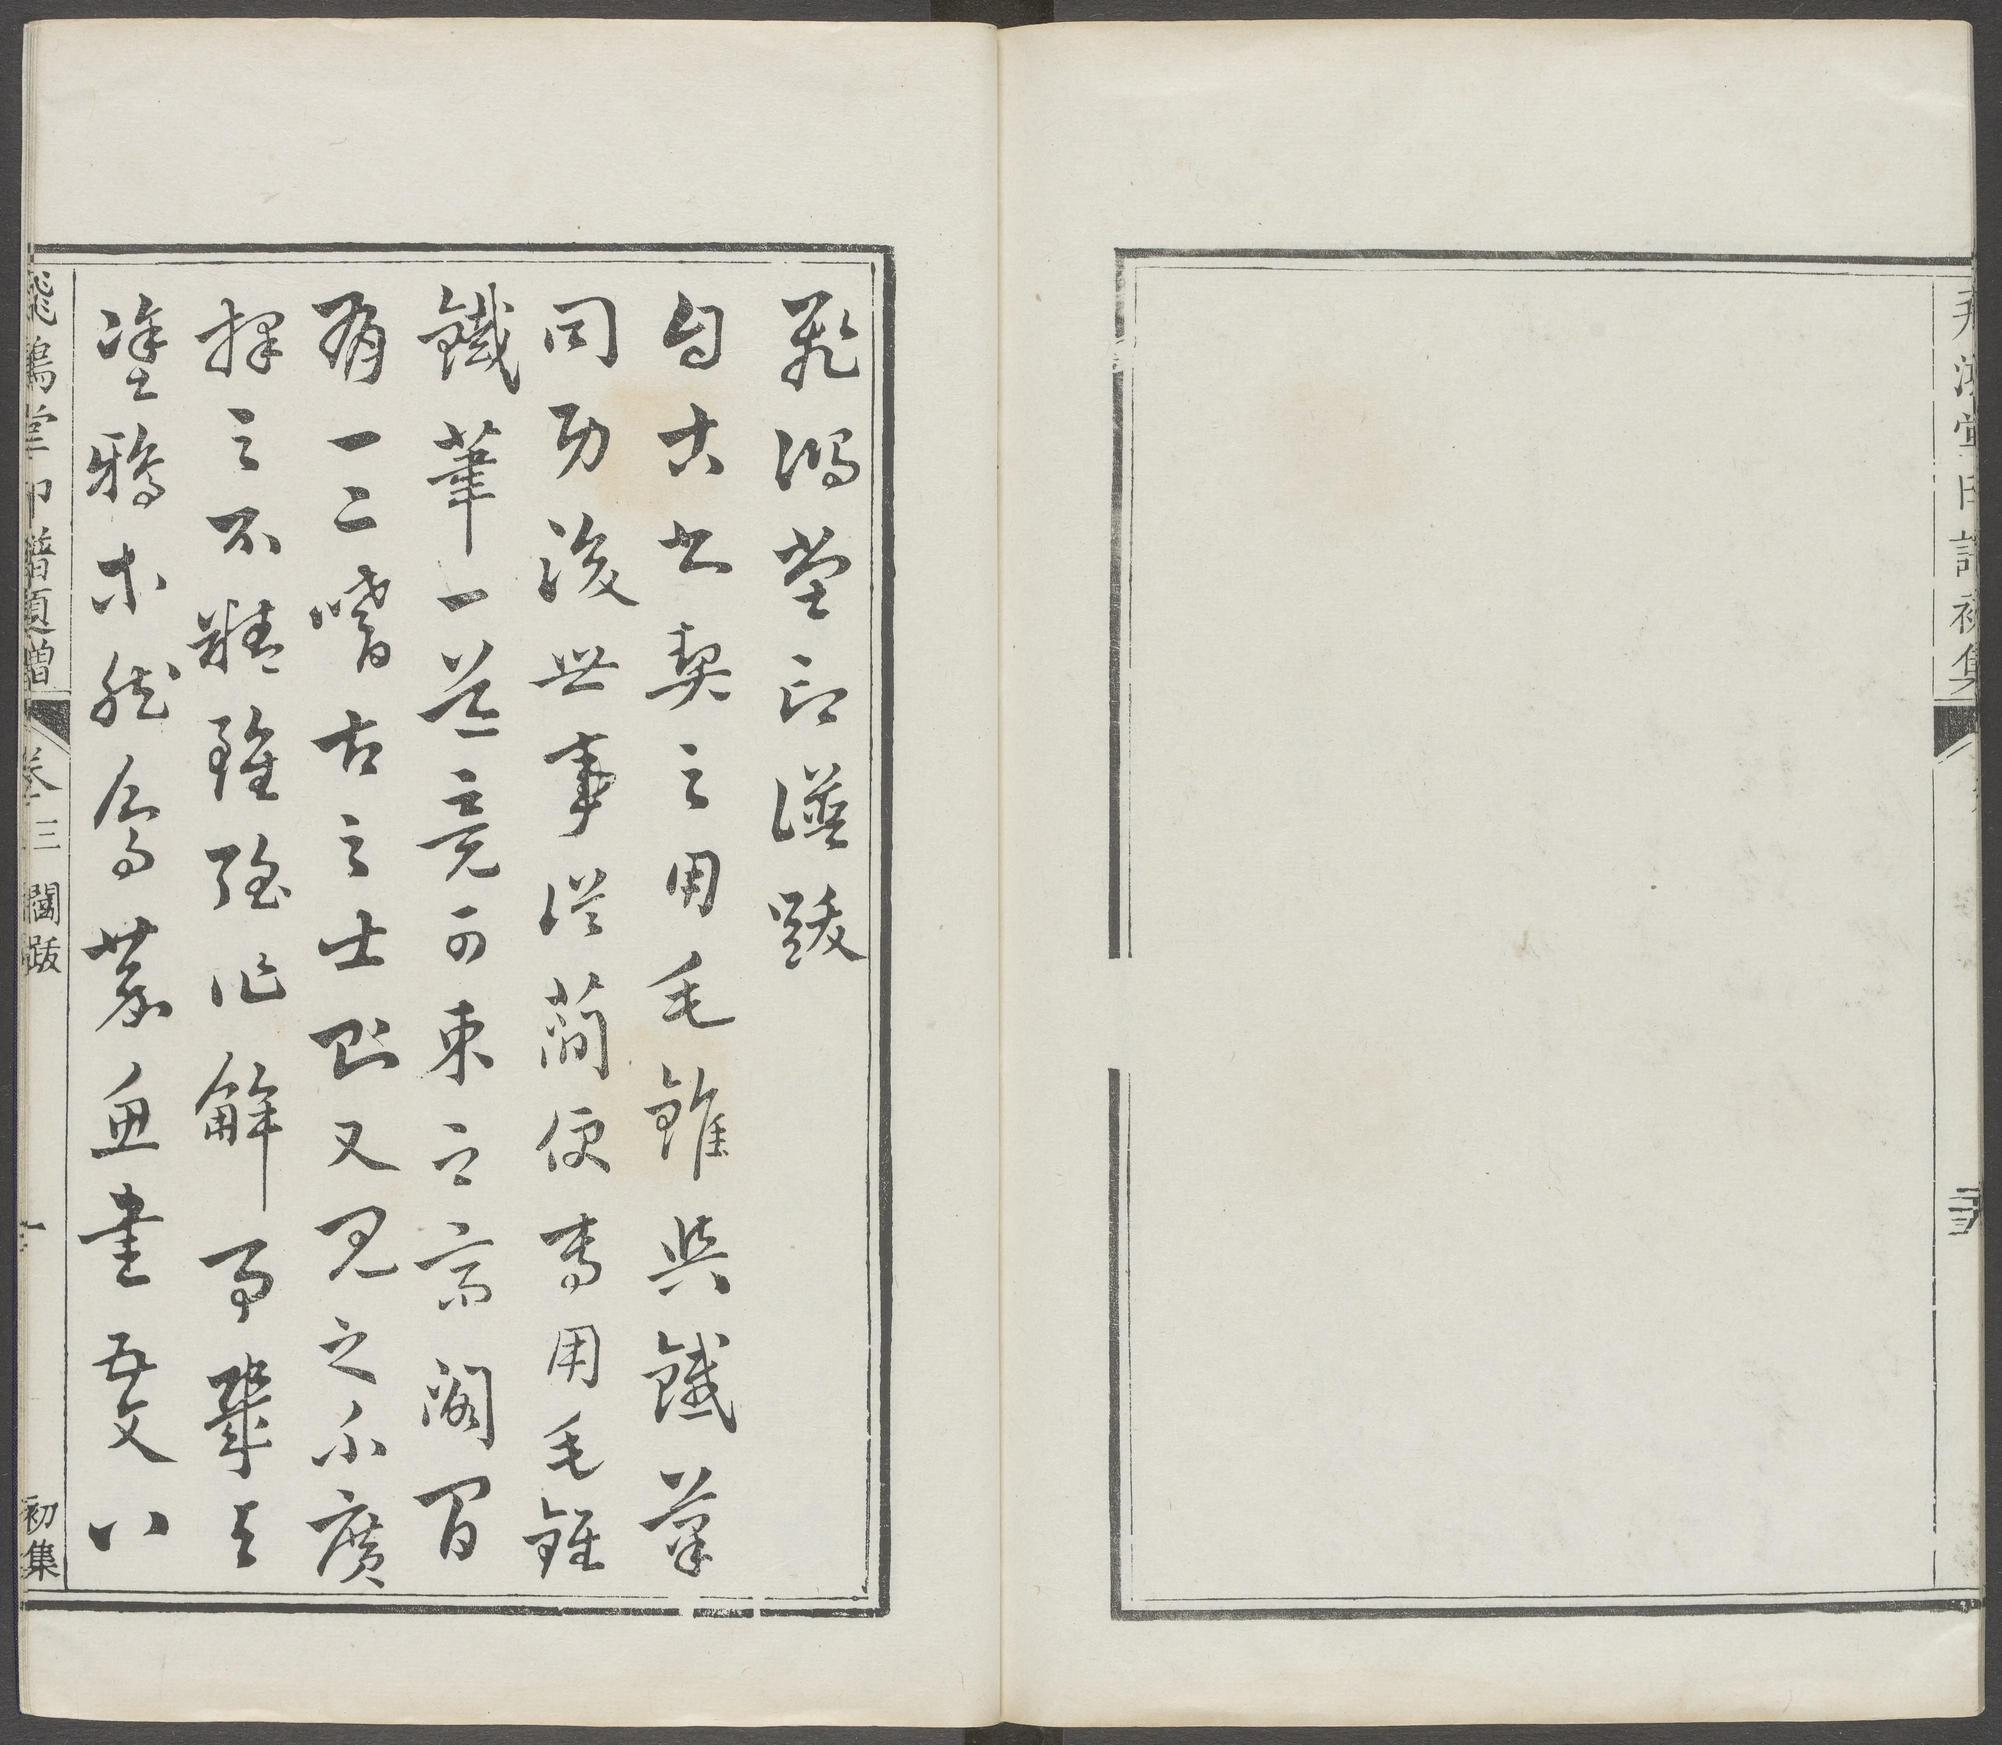 飛鴻堂印譜初集
飛鴻堂印譜跋
自古書契之用毛錐與鐵筆
同功後世事從簡便專用毛錐
鐵筆一道竟可束之高閣間
有一二嗜古之士出又見之不廣
擇之不精雖強作解事舉之
塗鴉求然今篆兼畫五文八
飛鴻堂印譜題贈
卷三
闔跋
初集